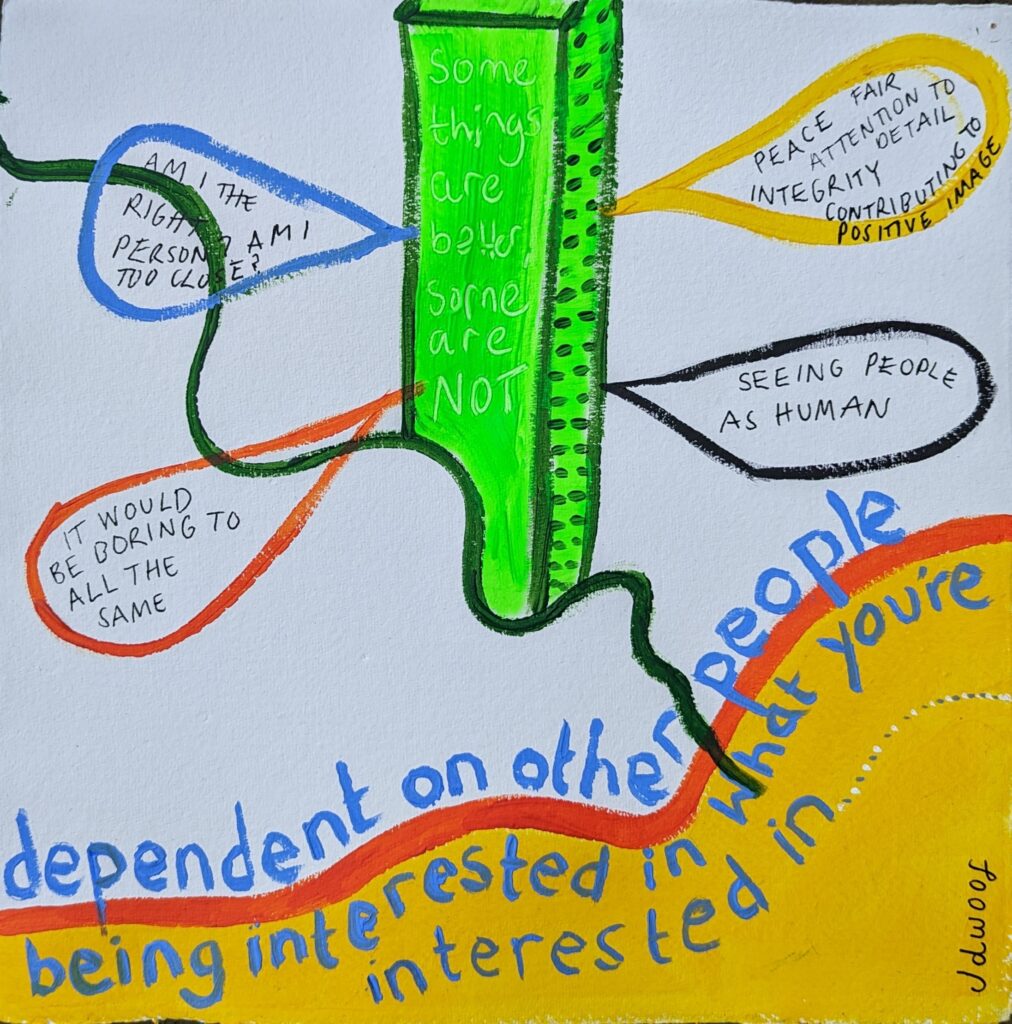 Some
things
are
better
some
are
NOT
AM I THE
RIGHT
PERSON? AM I
TOO CLOSE?
PEACE FAIR
ATTENTION TO
DETAIL
INTEGRITY
CONTRIBUTING TO
POSITIVE IMAGE
SEEING PEOPLE
AS HUMAN
IT WOULD
BE BORING TO
ALL THE
SAME
dependent on other people
being interested in what you're
interested in......
Jdwoof